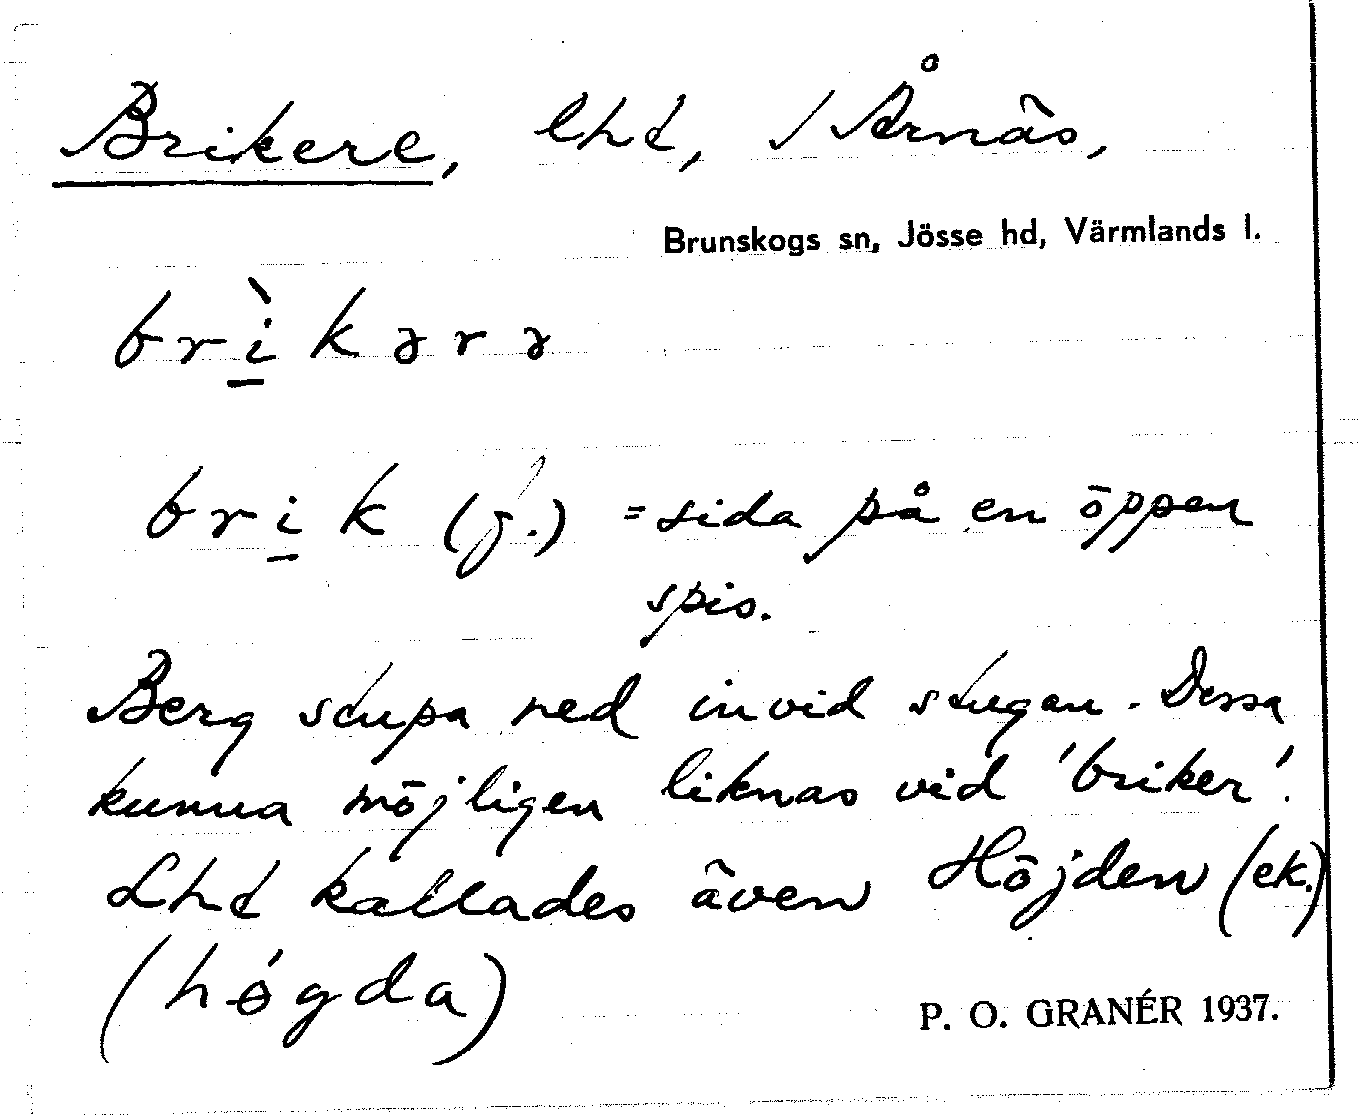 Brikere, lht, / Årnäs,
Brunskogs sn, Jösse hd, Värmlands l.
brì̱kərə
bri̱k (f.) = sida på en öppen
spis.
Berg stupa ned invid stugan. Dessa
kunna möjligen liknas vid 'briker'.
Lht kallades även Höjden (ek.)
(högda)
P. O. GRANÉR 1937.